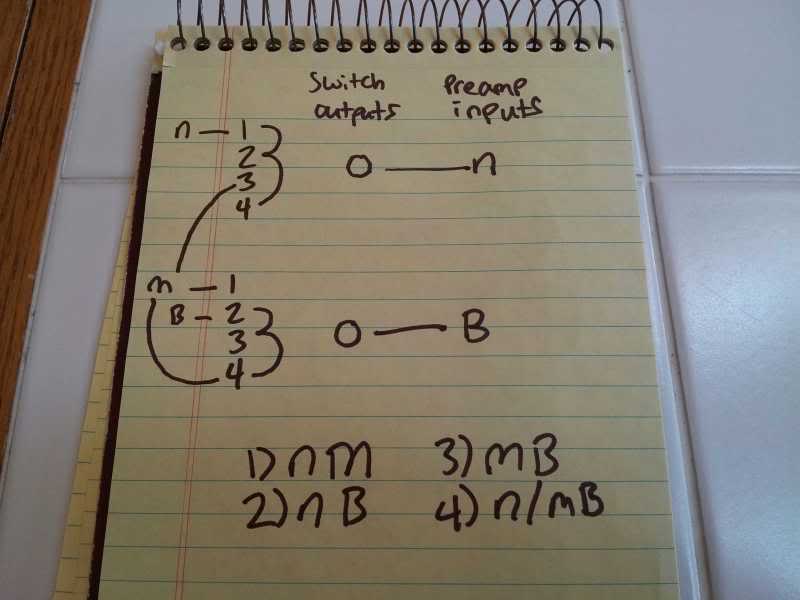 Switch Preamp
outputs inputs
n — 1
2
3
4
O — n
m — 1
B - 2
3
4
O — B
1) n M 3) m B
2) n B 4) n/mB